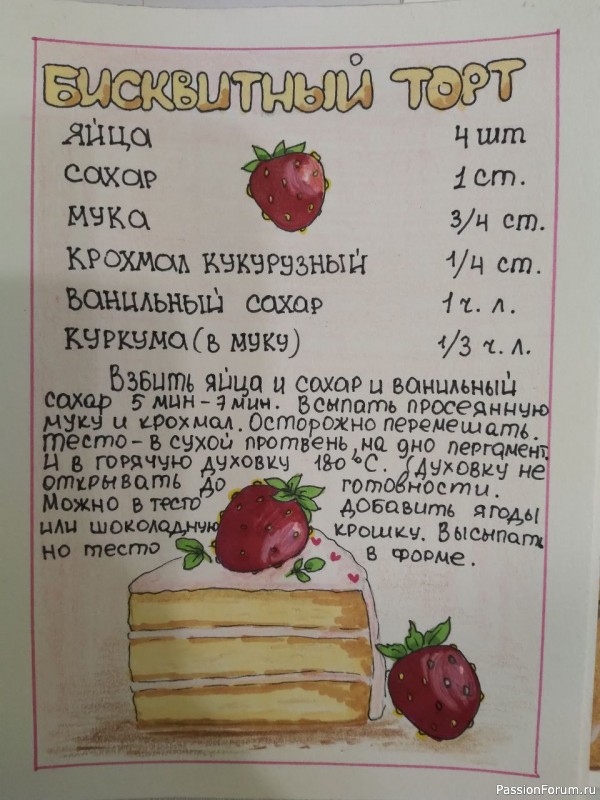 БИСКВИТНЫЙ ТОРТ
ЯЙЦА 4 шт
САХАР 1 ст.
МУКА 3/4 ст.
КРОХМАЛ КУКУРУЗНЫЙ 1/4 ст.
ВАНИЛЬНЫЙ САХАР 1 ч. л.
КУРКУМА (В МУКУ) 1/3 ч. л.
ВЗБИТЬ ЯЙЦА И САХАР И ВАНИЛЬНЫЙ
САХАР 5 МИН - 7 МИН. ВСЫПАТЬ ПРОСЕЯННУЮ
МУКУ И КРОХМАЛ. ОСТОРОЖНО ПЕРЕМЕШАТЬ.
ТЕСТО - В СУХОЙ ПРОТВЕНЬ, НА ДНО ПЕРГАМЕНТ.
И В ГОРЯЧУЮ ДУХОВКУ 180°С. (ДУХОВКУ НЕ
ОТКРЫВАТЬ ДО ГОТОВНОСТИ.
МОЖНО В ТЕСТО ДОБАВИТЬ ЯГОДЫ
ИЛИ ШОКОЛАДНУЮ КРОШКУ. ВЫСЫПАТЬ
НО ТЕСТО В ФОРМЕ.
PassionForum.ru